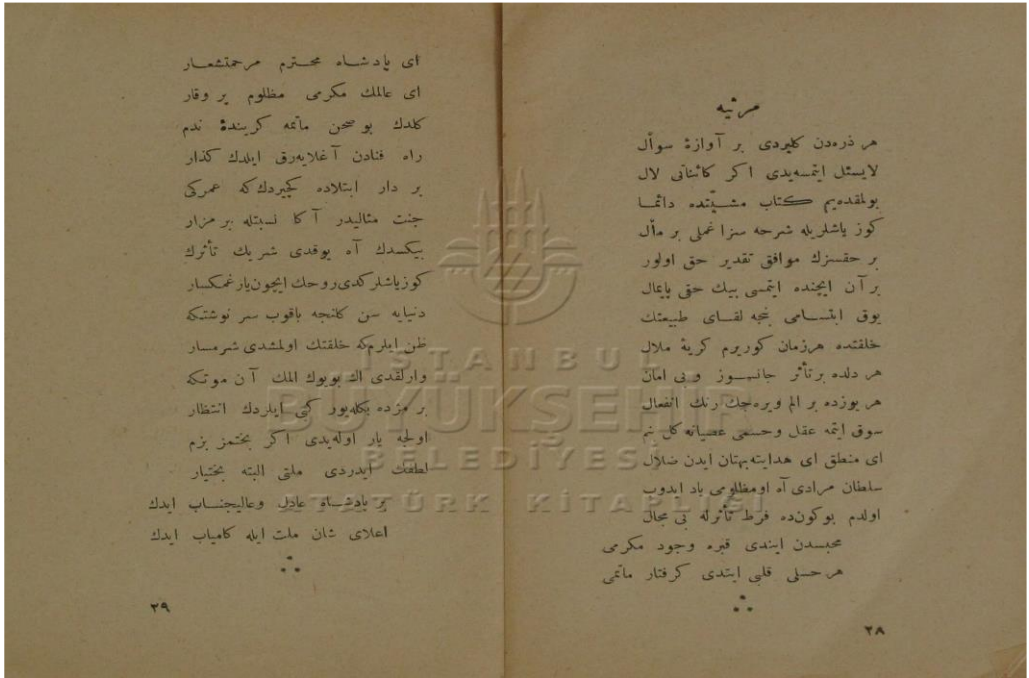 مرثیه
هر ذره‌دن کلیردی بر آوازهٔ سوأل
لایسئل ایتمسه‌یدی اکر کائناتی لال
بولمقده‌یم کتاب مشیّتده دائما
کوز یاشلریله شرحه سزا غملی بر مأل
بر حقسزك موافق تقدیر حق اولور
بر آن ایچنده ایتمسی بیك حقی پایمال
یوق ابتسامی غنجه لقای طبیعتك
خلقتده هرزمان کوریرم کریهٔ ملال
هر دلده بر تأثر جانسوز و بی امان
هر یوزده بر الم ویره‌جك رنك انفعال
سوق ایتمه عقل وحسمی عصیانه کل نم
ای منطق ای هدایته بهتان ایدن ضلال
سلطان مرادی آه اومظلومی یاد ایدوب
اولدم بوکون‌ده فرط تأثرله بی مجال
محبسدن ایندی قبره وجود مکرمی
هر حسلی قلبی ایتدی کرفتار ماتمی
۲۸
ای پادشاه محترم مرحمتشعار
ای عالمك مکرمی مظلوم پر وقار
کلدك بو صحن ماتمه کرینده‌ٔ ندم
راه فنادن آغلایه‌رق ایلدك کذار
بر دار ابتلاده کچیردك که عمرکی
جنت مثالیدر آکا نسبتله بر مزار
بیکسدك آه یوقدی شریك تأثرك
کوزیاشلرکدی روحك ایچون یار غمکسار
دنیایه سن کلنجه باقوب سر نوشتکه
ظن ایلرم‌که خلقتك اولمشدی شرمسار
وارلقدی اك بویوك المك آن موتکه
بر مزده بکله‌یور کبی ایلردك انتظار
اولجه یار اوله‌یدی اکر بختمز بزم
لطفك ایدردی ملتی البته بختیار
بر پادشاه عادل وعالیجناب ایدك
اعلای شان ملت ایله کامیاب ایدك
۲۹
ISTANBUL
BÜYÜKŞEHİR
BELEDİYESİ
ATATÜRK KİTAPLIĞI